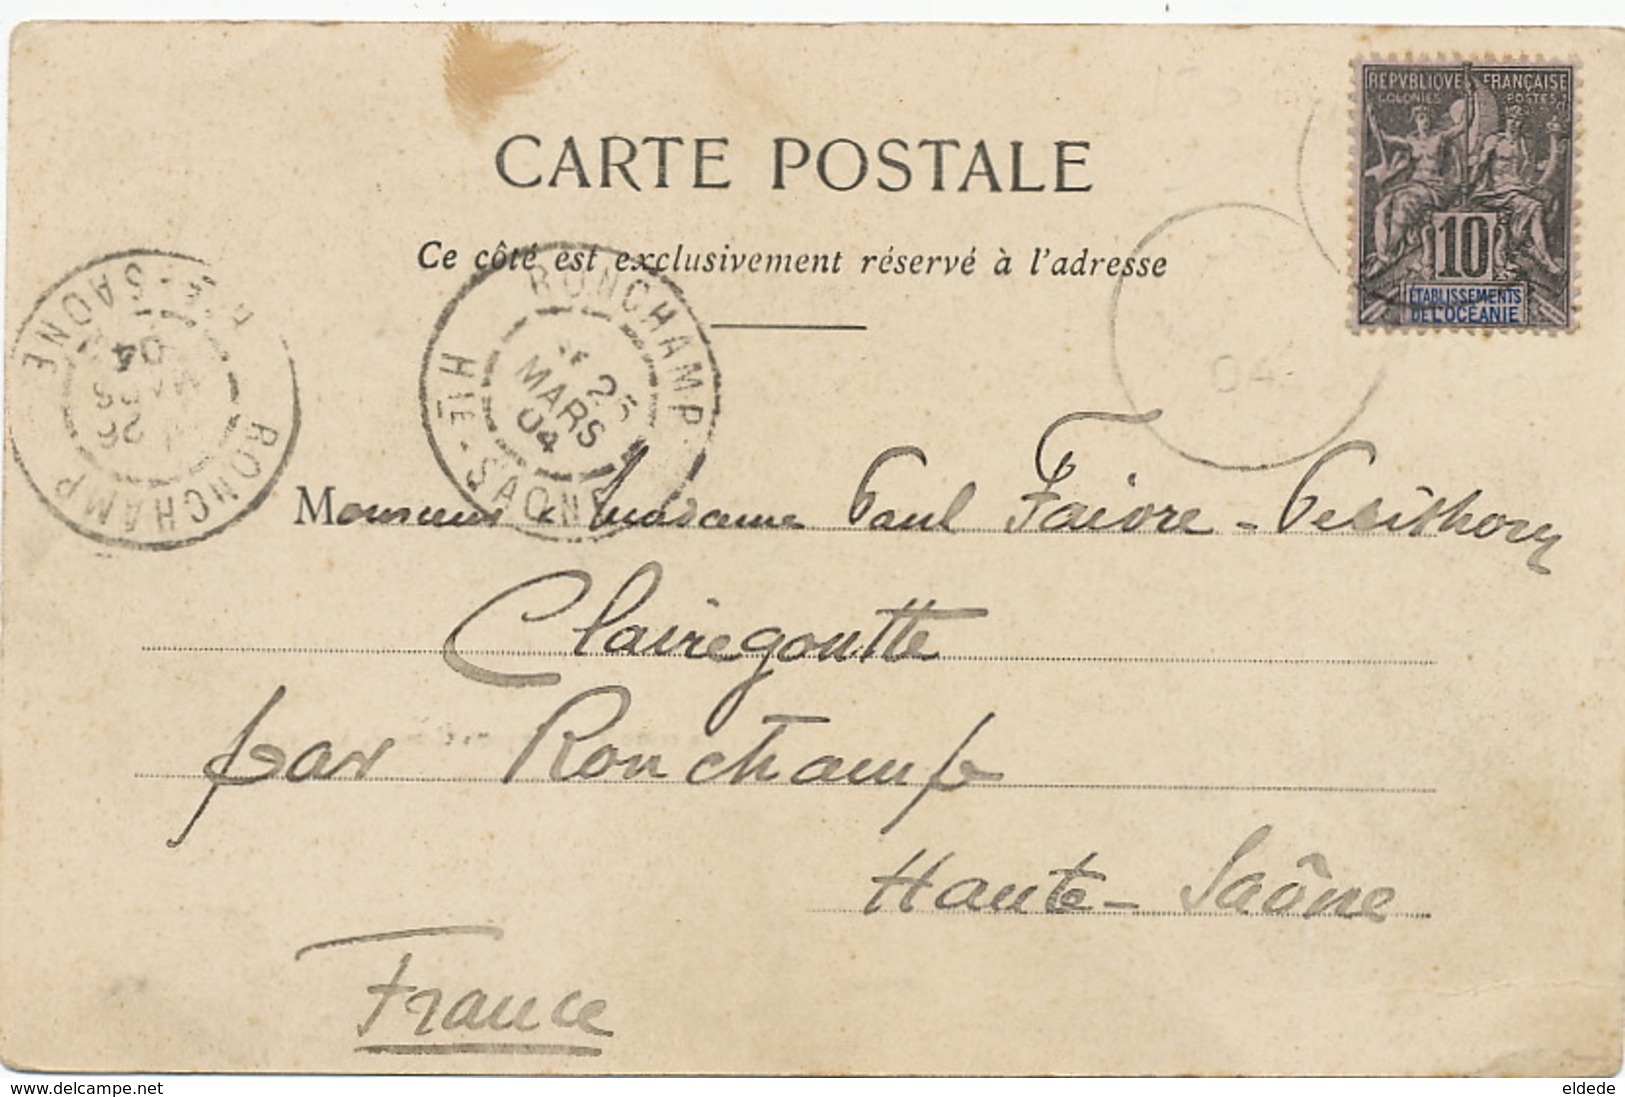 REPVBLIQVE FRANÇAISE
COLONIES POSTES
10
ÉTABLISSEMENTS
DE L'OCÉANIE
CARTE POSTALE
Ce côté est exclusivement réservé à l'adresse
RONCHAMP
25
MARS
04
HTE-SAÔNE
RONCHAMP
26
MARS
04
HTE-SAÔNE
04
Monsieur & Madame Paul Faivre-
Clairegoutte
par Ronchamp
Haute-Saône
France
www.delcampe.net
eldede